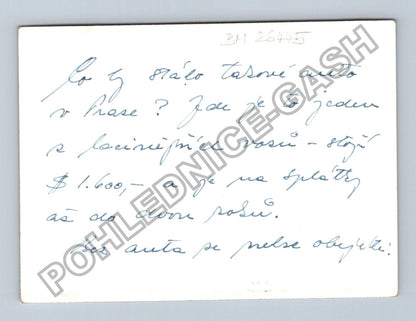 BM 2644 II
Co by stálo takové auto
v Praze? Zde je to jeden
z lacinějších vozů - stojí
$ 1.600,- a je na splátky
až do dvou roků.
Bez auta se nelze obejíti.
POHLEDNICE-GASH